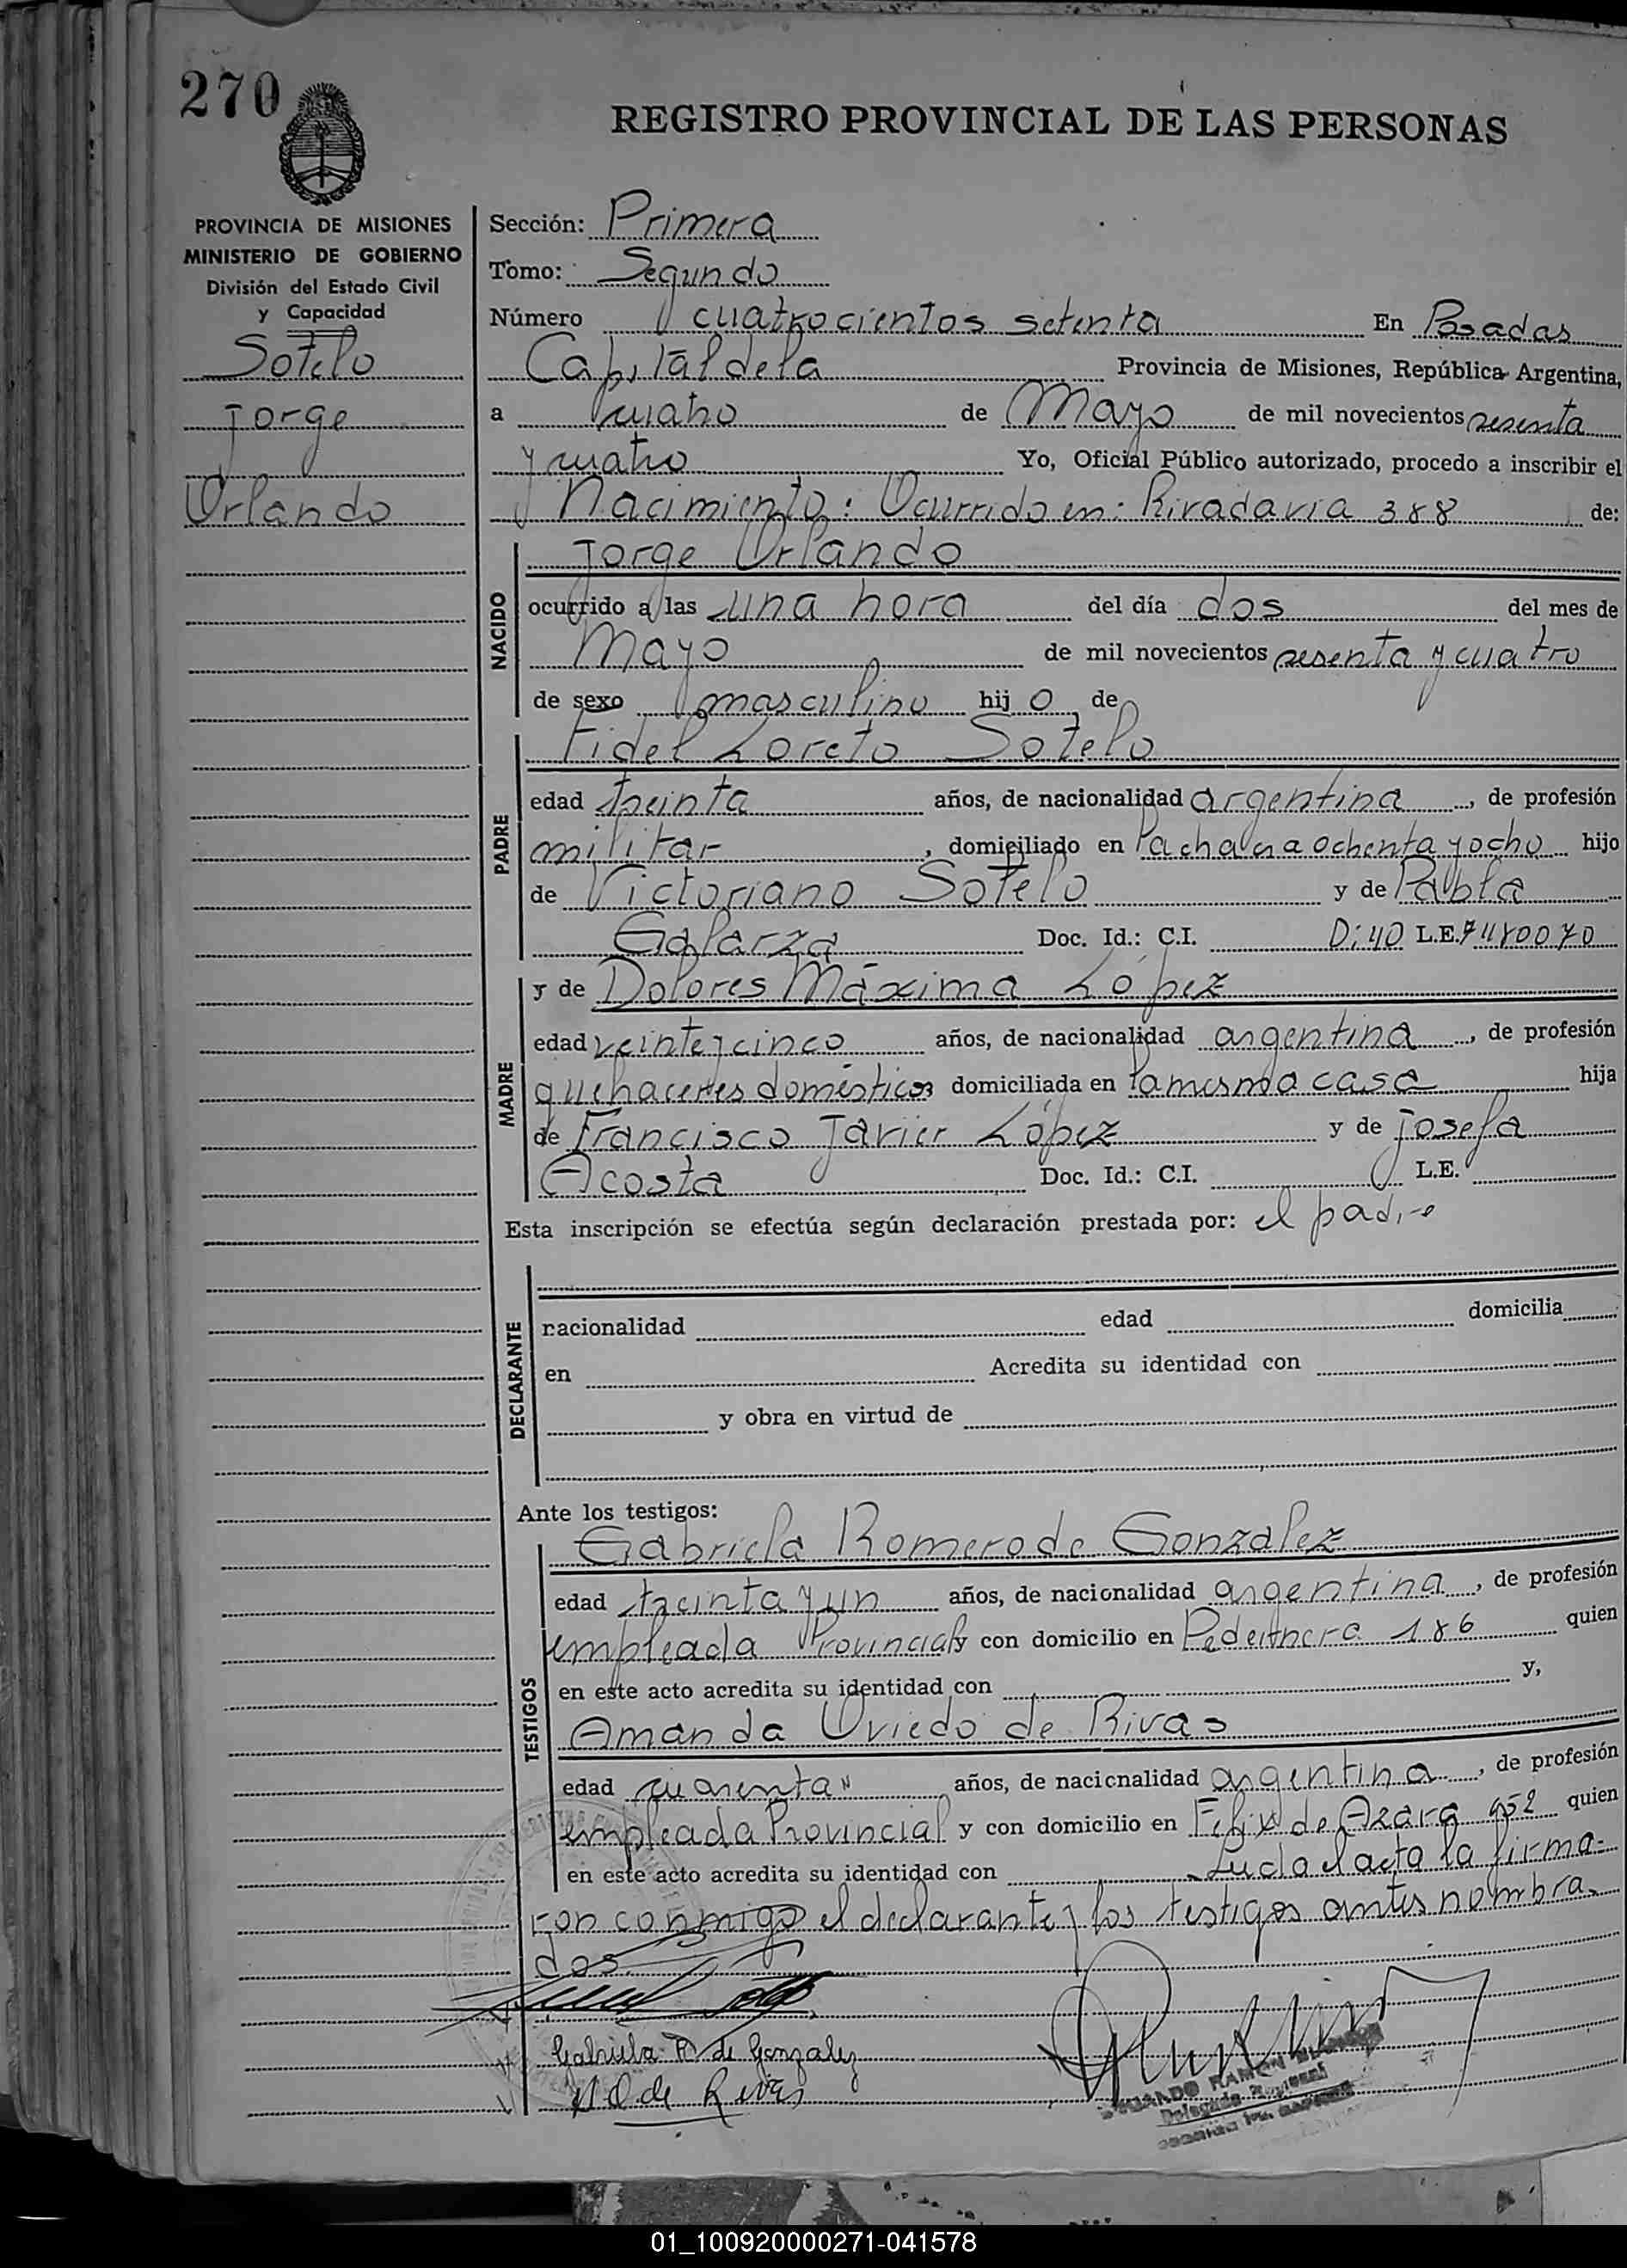 270
REGISTRO PROVINCIAL DE LAS PERSONAS
PROVINCIA DE MISIONES
MINISTERIO DE GOBIERNO
División del Estado Civil
y Capacidad
Sotelo
Jorge
Orlando
Sección: Primera
Tomo: Segundo
Número cuatrocientos setenta En Posadas
Capital de la Provincia de Misiones, República Argentina,
a cuatro de Mayo de mil novecientos sesenta
y cuatro Yo, Oficial Público autorizado, procedo a inscribir el
Nacimiento: Ocurrido en: Rivadavia 388 de:
NACIDO
Jorge Orlando
ocurrido a las una hora del día dos del mes de
Mayo de mil novecientos sesenta y cuatro
de sexo masculino hijo de
PADRE
Fidel Loreto Sotelo
edad treinta años, de nacionalidad argentina, de profesión
militar, domiciliado en ochenta y ocho hijo
de Victoriano Sotelo y de Pabla
Galarza Doc. Id.: C.I. D: 40 L.E. 7480070
MADRE
y de Dolores Máxima López
edad veinte y cinco años, de nacionalidad argentina, de profesión
quehaceres domésticos domiciliada en la misma casa hija
de Francisco Javier López y de Josefa
Acosta Doc. Id.: C.I. L.E.
Esta inscripción se efectúa según declaración prestada por: el padre
DECLARANTE
nacionalidad edad domicilia
en Acredita su identidad con
y obra en virtud de
Ante los testigos:
TESTIGOS
Gabriela Romero de Gonzalez
edad treinta y un años, de nacionalidad argentina, de profesión
empleada Provincial y con domicilio en Pedernera 186 quien
en este acto acredita su identidad con y,
Amanda Oviedo de Rivas
edad cuarenta años, de nacionalidad argentina, de profesión
empleada Provincial y con domicilio en Felix de Azara 952 quien
en este acto acredita su identidad con Leida el acta la firma-
ron conmigo el declarante y los testigos antes nombra-
dos.
Gabriela R de Gonzalez
A O de Rivas
RAMON
Delegado
01_100920000271-041578